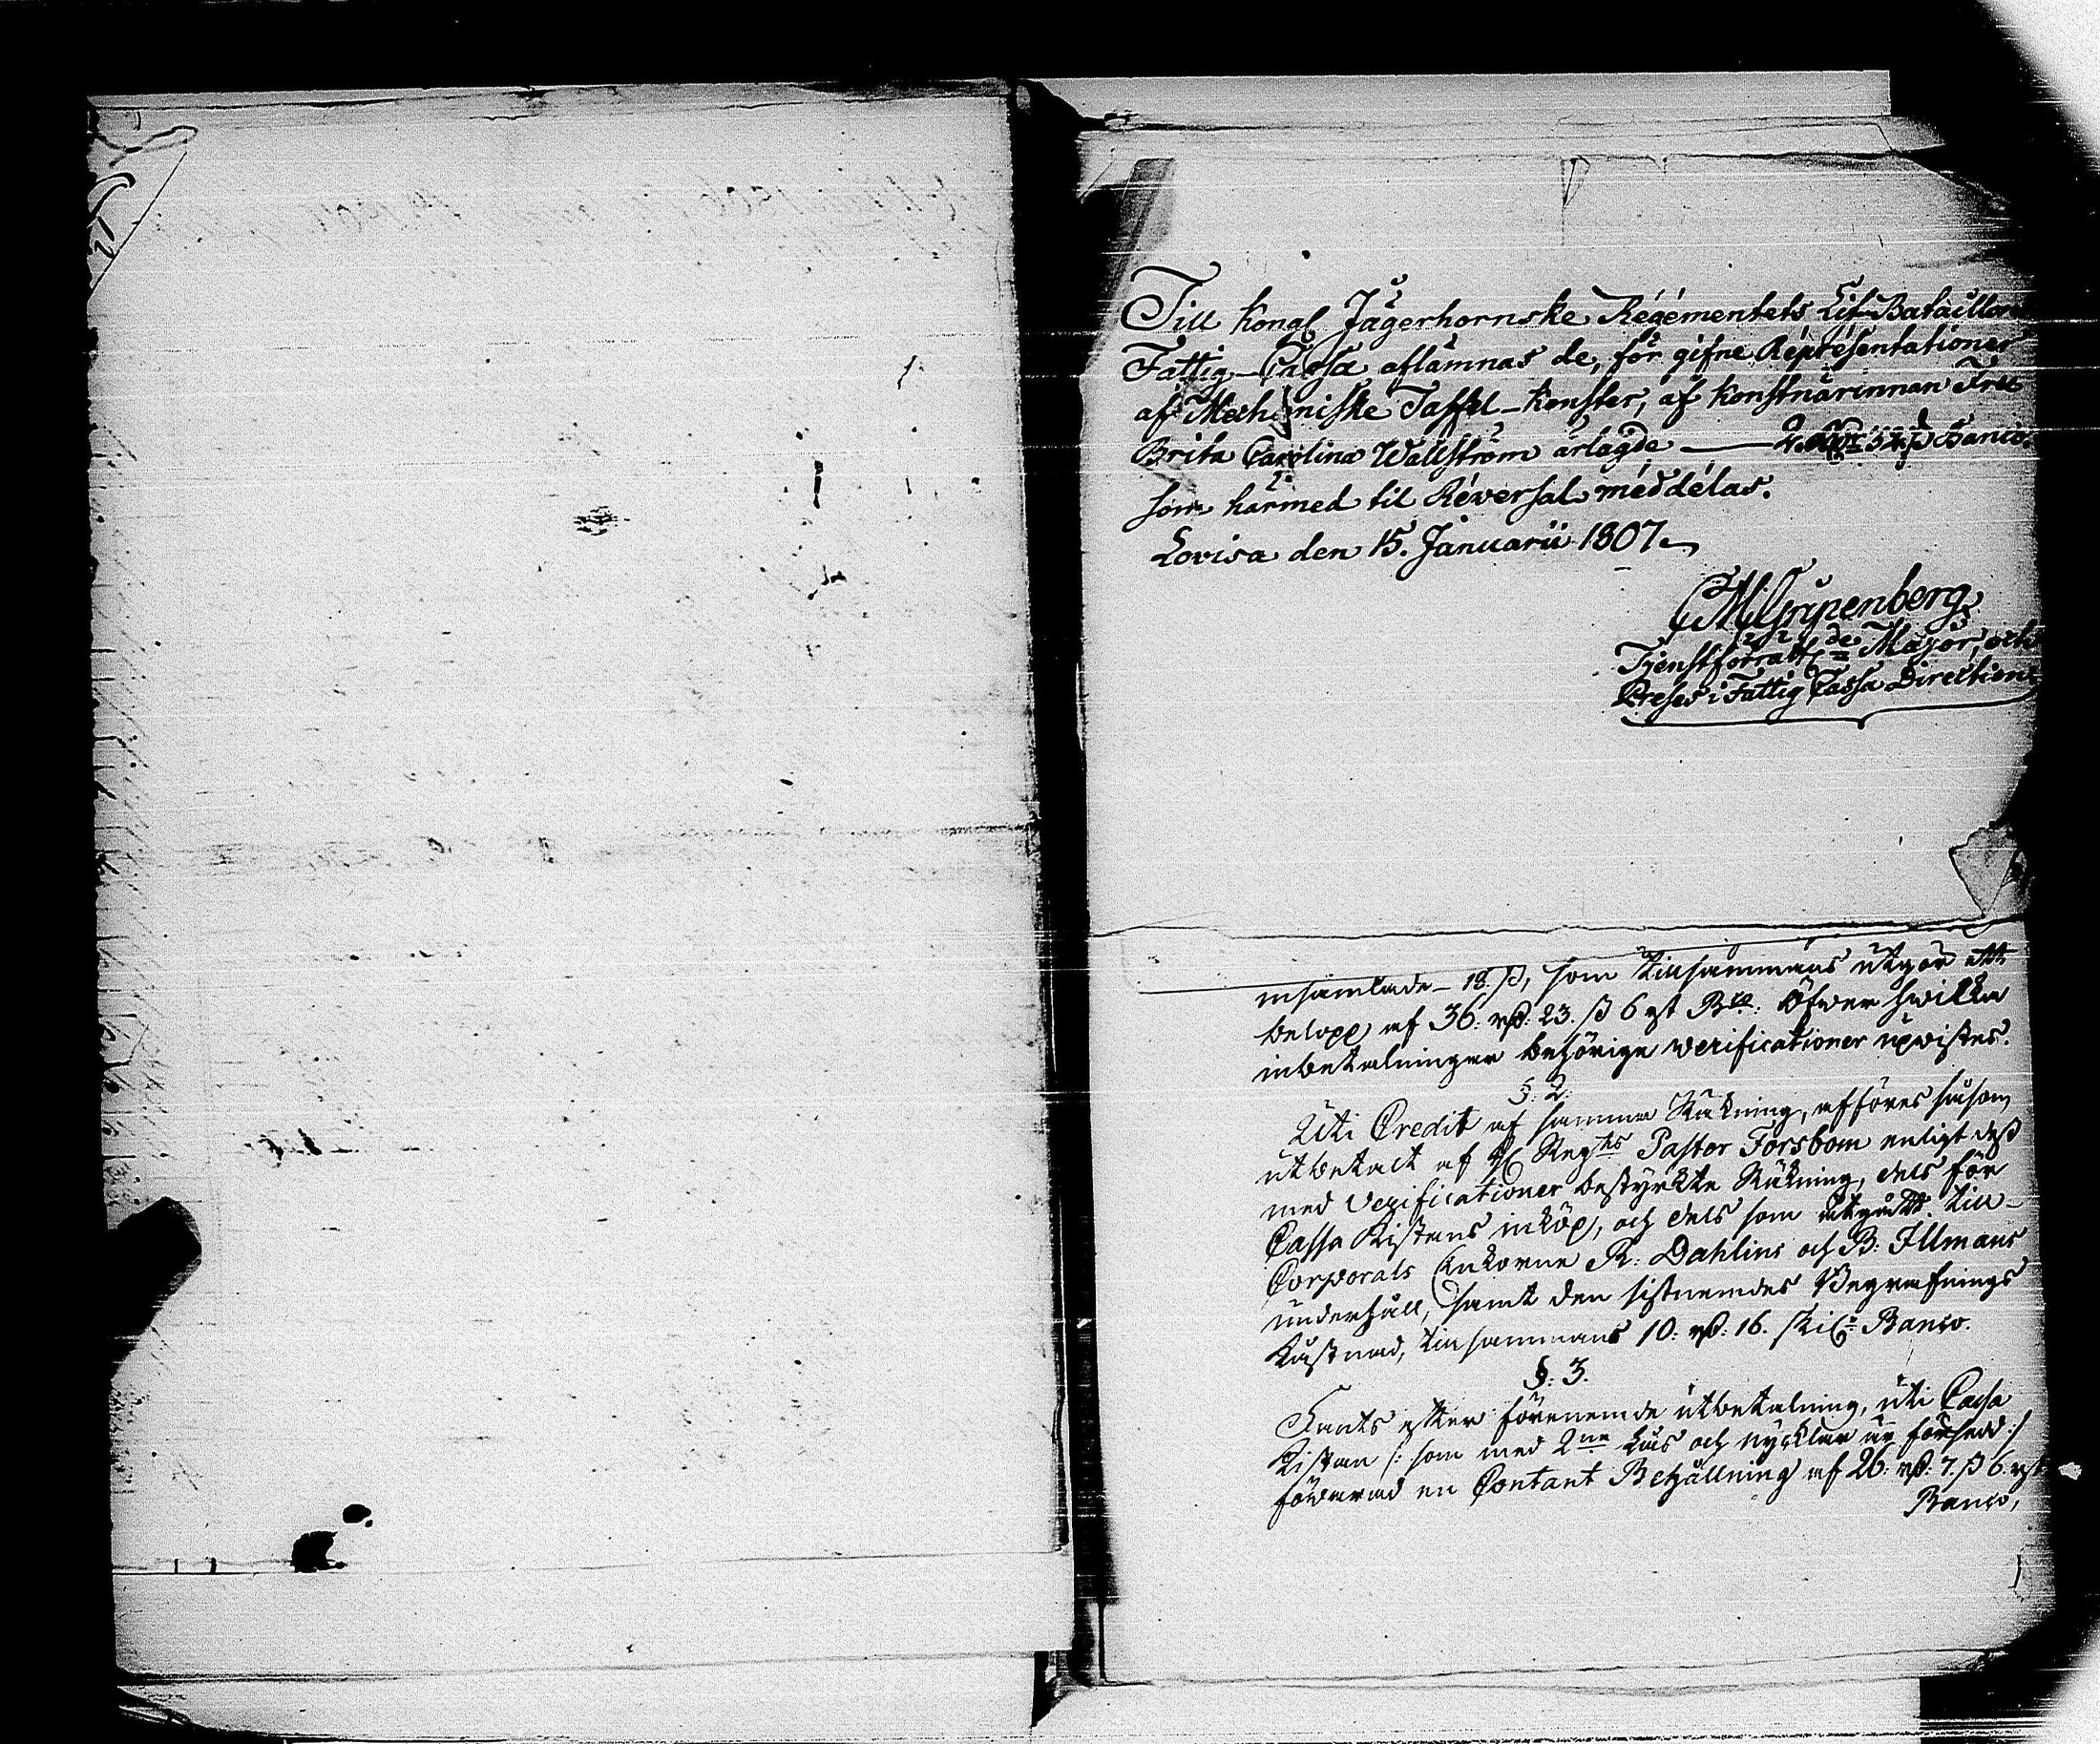 Till Kongl Jägerhornske Régémentets Lif-Bataillon
Fattig-Cassa aflämnas de, för gifne Répresentationer
af Mechaniske Taffel-Konster, af Konstnärinnan Fru
Brita Carolina Wallström ärlagde Banco.
som härmed til Réversal méddélas.
Lovisa den 15. Januarii 1807.
CMGripenberg
Tjenstförrätt:de Major, och
Preses i Fattig Cassa Direction
insamlade 18. ß, som tillsammans utgör ett
belopp af 36: rd: 23. ß 6 rst Bco. Öfwer hwilka
inbetalningar behörige verificationer upwistes.
§. 2.
Uti Credit af samma Räkning, afföres såsom
utbetalt af Reg:ts Pastor Forsbom enligt dess
med Verificationer bestyrkte Räkning, dels för
Cassa Kistans inköp, och dels som utgått till
Corporals Enkorne R: Dahlins och B: Illmans
underhåll, samt den sistnemdes Begrafnings
Kostnad, tillsammans 10: rd: 16. skil: Banco.
§. 3.
Fants efter förenemde utbetalning, uti Cassa
Kistan /: som med 2ne Lås och nycklar är försedd :/
förwarad en Contant Behållning af 26: rd: 7. ß 6. rst
Banco,